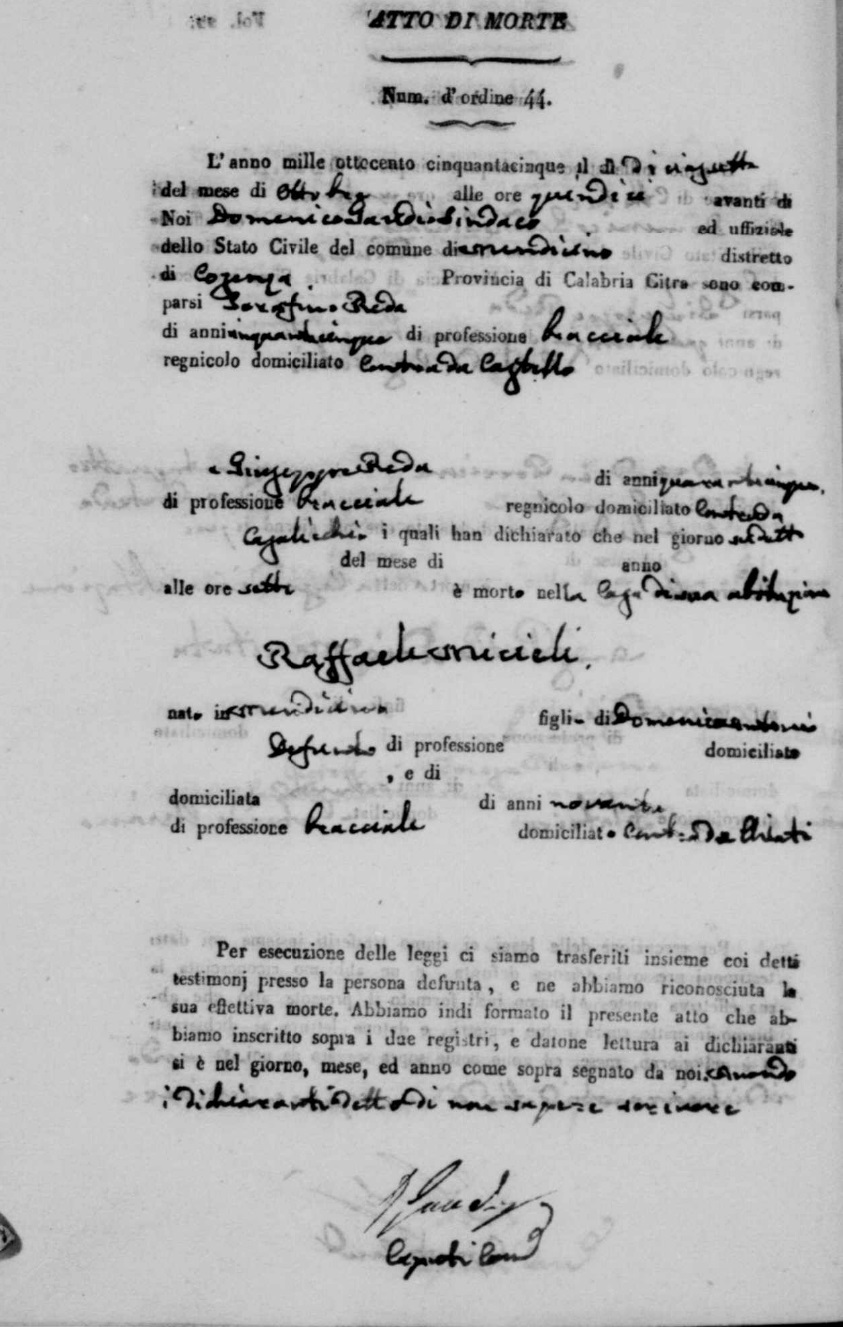 ATTO DI MORTE
Num. d'ordine 44.
L'anno mille ottocento cinquantacinque il dì Diciasette
del mese di Ottobre alle ore quindici avanti di
Noi Domenico Gaudio Sindaco ed uffiziale
dello Stato Civile del comune di Mendicino distretto
di Cosenza Provincia di Calabria Citra sono com-
parsi Serafino Reda
di anni cinquantacinque di professione bracciale
regnicolo domiciliato Contrada Castello
e Giuseppe Reda di anni quarantacinque,
di professione bracciale regnicolo domiciliato Contrada
i quali han dichiarato che nel giorno sudetto
del mese di anno
alle ore sette è morto nella casa di sua abitazione
Raffaele Micieli.
nato in Mendicino figlio di Domenicantonio
Defunto di professione domiciliato
, e di
domiciliata di anni novanta
di professione bracciale domiciliato
Per esecuzione delle leggi ci siamo trasferiti insieme coi detti
testimonj presso la persona defunta, e ne abbiamo riconosciuta la
sua effettiva morte. Abbiamo indi formato il presente atto che ab-
biamo inscritto sopra i due registri, e datone lettura ai dichiaranti
si è nel giorno, mese, ed anno come sopra segnato da noi, avendo
i dichiaranti detto di non sapere scrivere